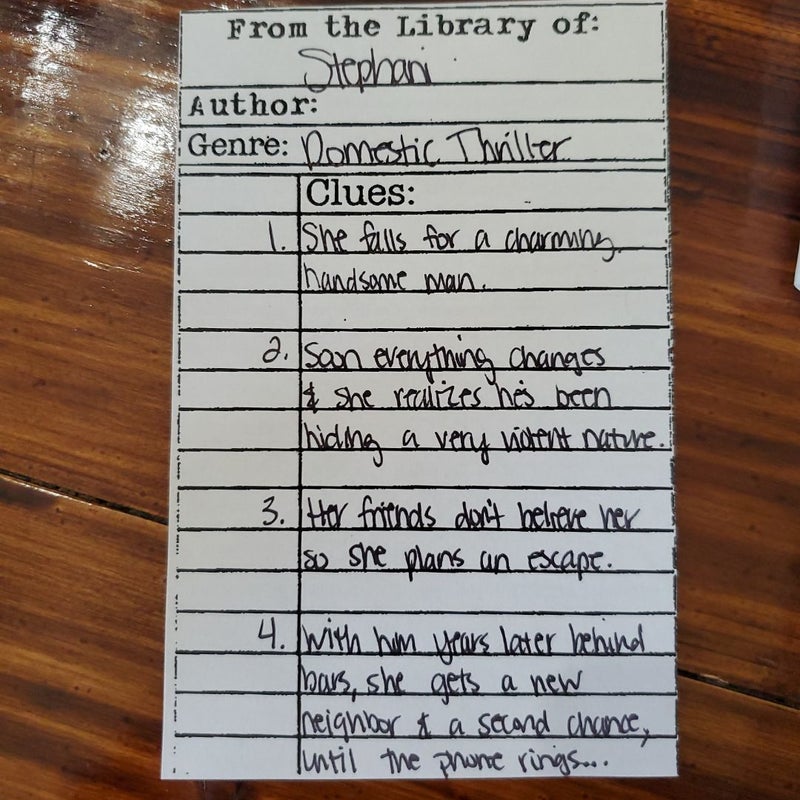 From the Library of:
Stephani
Author:
Genre: Domestic Thriller
Clues:
1. She falls for a charming,
handsome man.
2. Soon everything changes
& she realizes he's been
hiding a very violent nature.
3. Her friends don't believe her
so she plans an escape.
4. With him years later behind
bars, she gets a new
neighbor & a second chance,
until the phone rings...